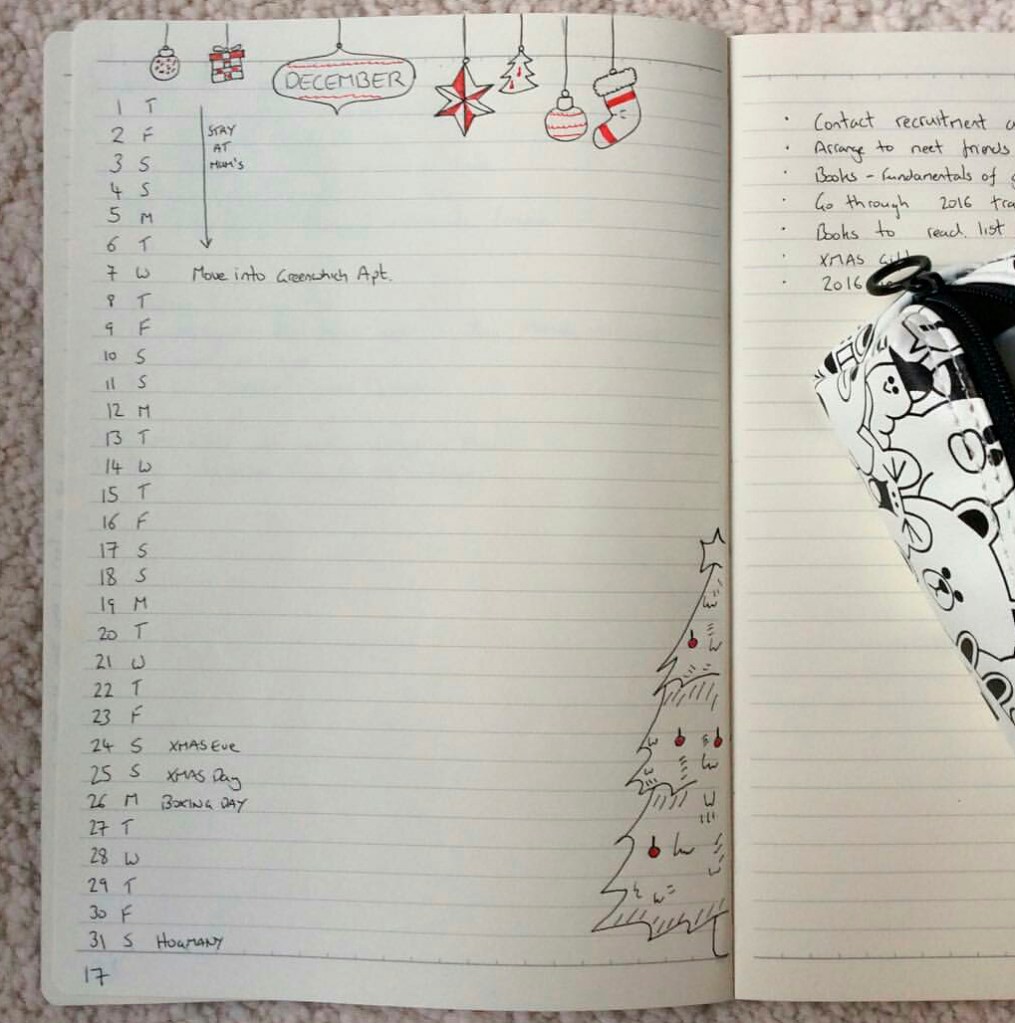 DECEMBER
1 T
2 F STAY
AT
3 S MUM'S
4 S
5 M
6 T
7 W Move into Greenwhich Apt.
8 T
9 F
10 S
11 S
12 M
13 T
14 W
15 T
16 F
17 S
18 S
19 M
20 T
21 W
22 T
23 F
24 S XMAS Eve
25 S XMAS Day
26 M BOXING DAY
27 T
28 W
29 T
30 F
31 S HOGMANY
17
· Contact recruitment
· Arrange to meet friends
· Books - Fundamentals of
· Go through 2016
· Books to read list
· XMAS
· 2016